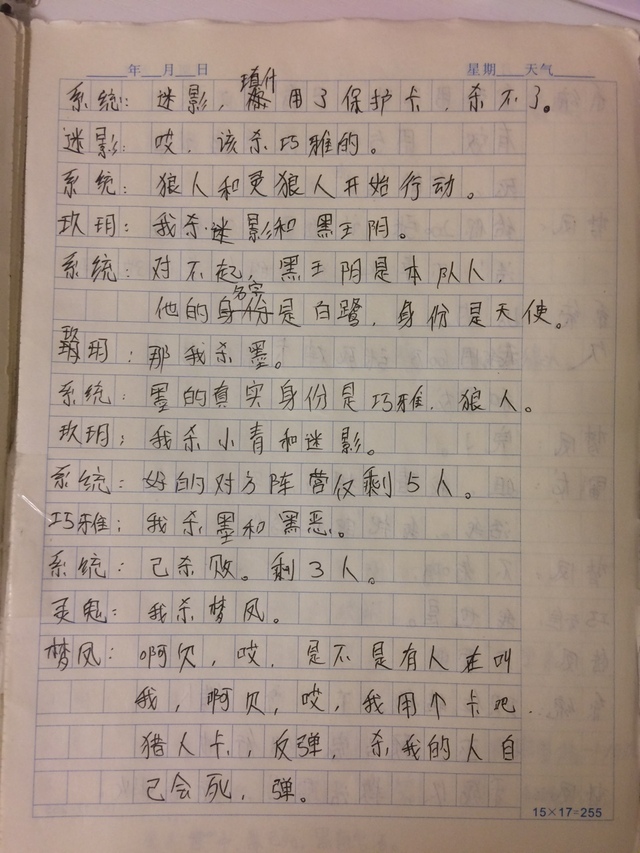 年 月 日 星期 天气
系统：迷影，瑱什用了保护卡，杀不了。
迷影：哎，该杀巧雅的。
系统：狼人和灵狼人开始行动。
玖玥：我杀迷影和黑王阴。
系统：对不起，黑王阴是本队人，
他的名字是白鹭，身份是天使。
玖玥：那我杀墨。
系统：墨的真实身份是巧雅，狼人。
玖玥：我杀小青和迷影。
系统：好的对方阵营仅剩5人。
巧雅：我杀墨和黑恶。
系统：已杀败。剩3人。
灵鬼：我杀梦凤。
梦凤：啊欠，哎，是不是有人在叫
我，啊欠，哎，我用个卡吧.
猎人卡，反弹，杀我的人自
己会死，弹。
15×17=255